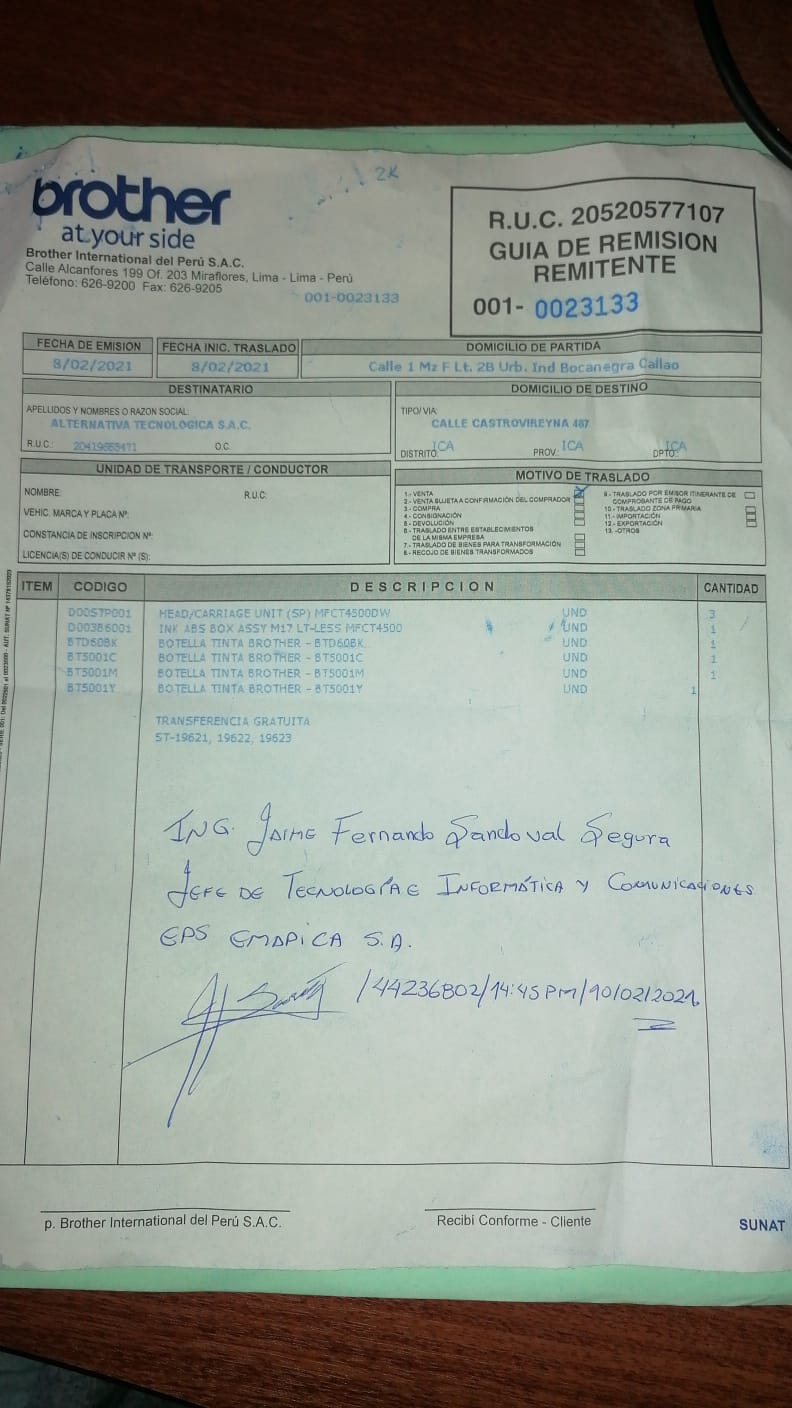 2K
brother
at your side
Brother International del Perú S.A.C.
Calle Alcanfores 199 Of. 203 Miraflores, Lima - Lima - Perú
Teléfono: 626-9200 Fax: 626-9205
001-0023133
R.U.C. 20520577107
GUIA DE REMISION
REMITENTE
001- 0023133
FECHA DE EMISION
8/02/2021
FECHA INIC. TRASLADO
8/02/2021
DOMICILIO DE PARTIDA
Calle 1 Mz F Lt. 2B Urb. Ind Bocanegra Callao
DESTINATARIO
APELLIDOS Y NOMBRES O RAZON SOCIAL:
ALTERNATIVA TECNOLOGICA S.A.C.
R.U.C.: O.C.
DOMICILIO DE DESTINO
TIPO/VIA:
CALLE CASTROVIREYNA 487
DISTRITO: ICA PROV.: ICA DPTO.: ICA
UNIDAD DE TRANSPORTE / CONDUCTOR
NOMBRE: R.U.C:
VEHIC. MARCA Y PLACA Nº:
CONSTANCIA DE INSCRIPCION Nº:
LICENCIA(S) DE CONDUCIR Nº (S):
MOTIVO DE TRASLADO
1.- VENTA
2.- VENTA SUJETA A CONFIRMACIÓN DEL COMPRADOR
3.- COMPRA
4.- CONSIGNACIÓN
5.- DEVOLUCIÓN
6.- TRASLADO ENTRE ESTABLECIMIENTOS
DE LA MISMA EMPRESA
7.- TRASLADO DE BIENES PARA TRANSFORMACIÓN
8.- RECOJO DE BIENES TRANSFORMADOS
9.- TRASLADO POR EMISOR ITINERANTE DE
COMPROBANTE DE PAGO
10.- TRASLADO ZONA PRIMARIA
11.- IMPORTACIÓN
12.- EXPORTACIÓN
13.- OTROS
ITEM CODIGO DESCRIPCION CANTIDAD
D00STP001 HEAD/CARRIAGE UNIT (SP) MFCT4500DW UND 3
D003B6001 INK ABS BOX ASSY M17 LT-LESS MFCT4500 UND 1
BTD60BK BOTELLA TINTA BROTHER - BTD60BK UND 1
BT5001C BOTELLA TINTA BROTHER - BT5001C UND 1
BT5001M BOTELLA TINTA BROTHER - BT5001M UND 1
BT5001Y BOTELLA TINTA BROTHER - BT5001Y UND 1
TRANSFERENCIA GRATUITA
ST-19621, 19622, 19623
ING. JAIME Fernando Sandoval Segura
JEFE DE TECNOLOGÍA E INFORMÁTICA Y COMUNICACIONES
EPS EMAPICA S.A.
/44236802/14:45 PM/10/02/2021
p. Brother International del Perú S.A.C.
Recibi Conforme - Cliente
SUNAT